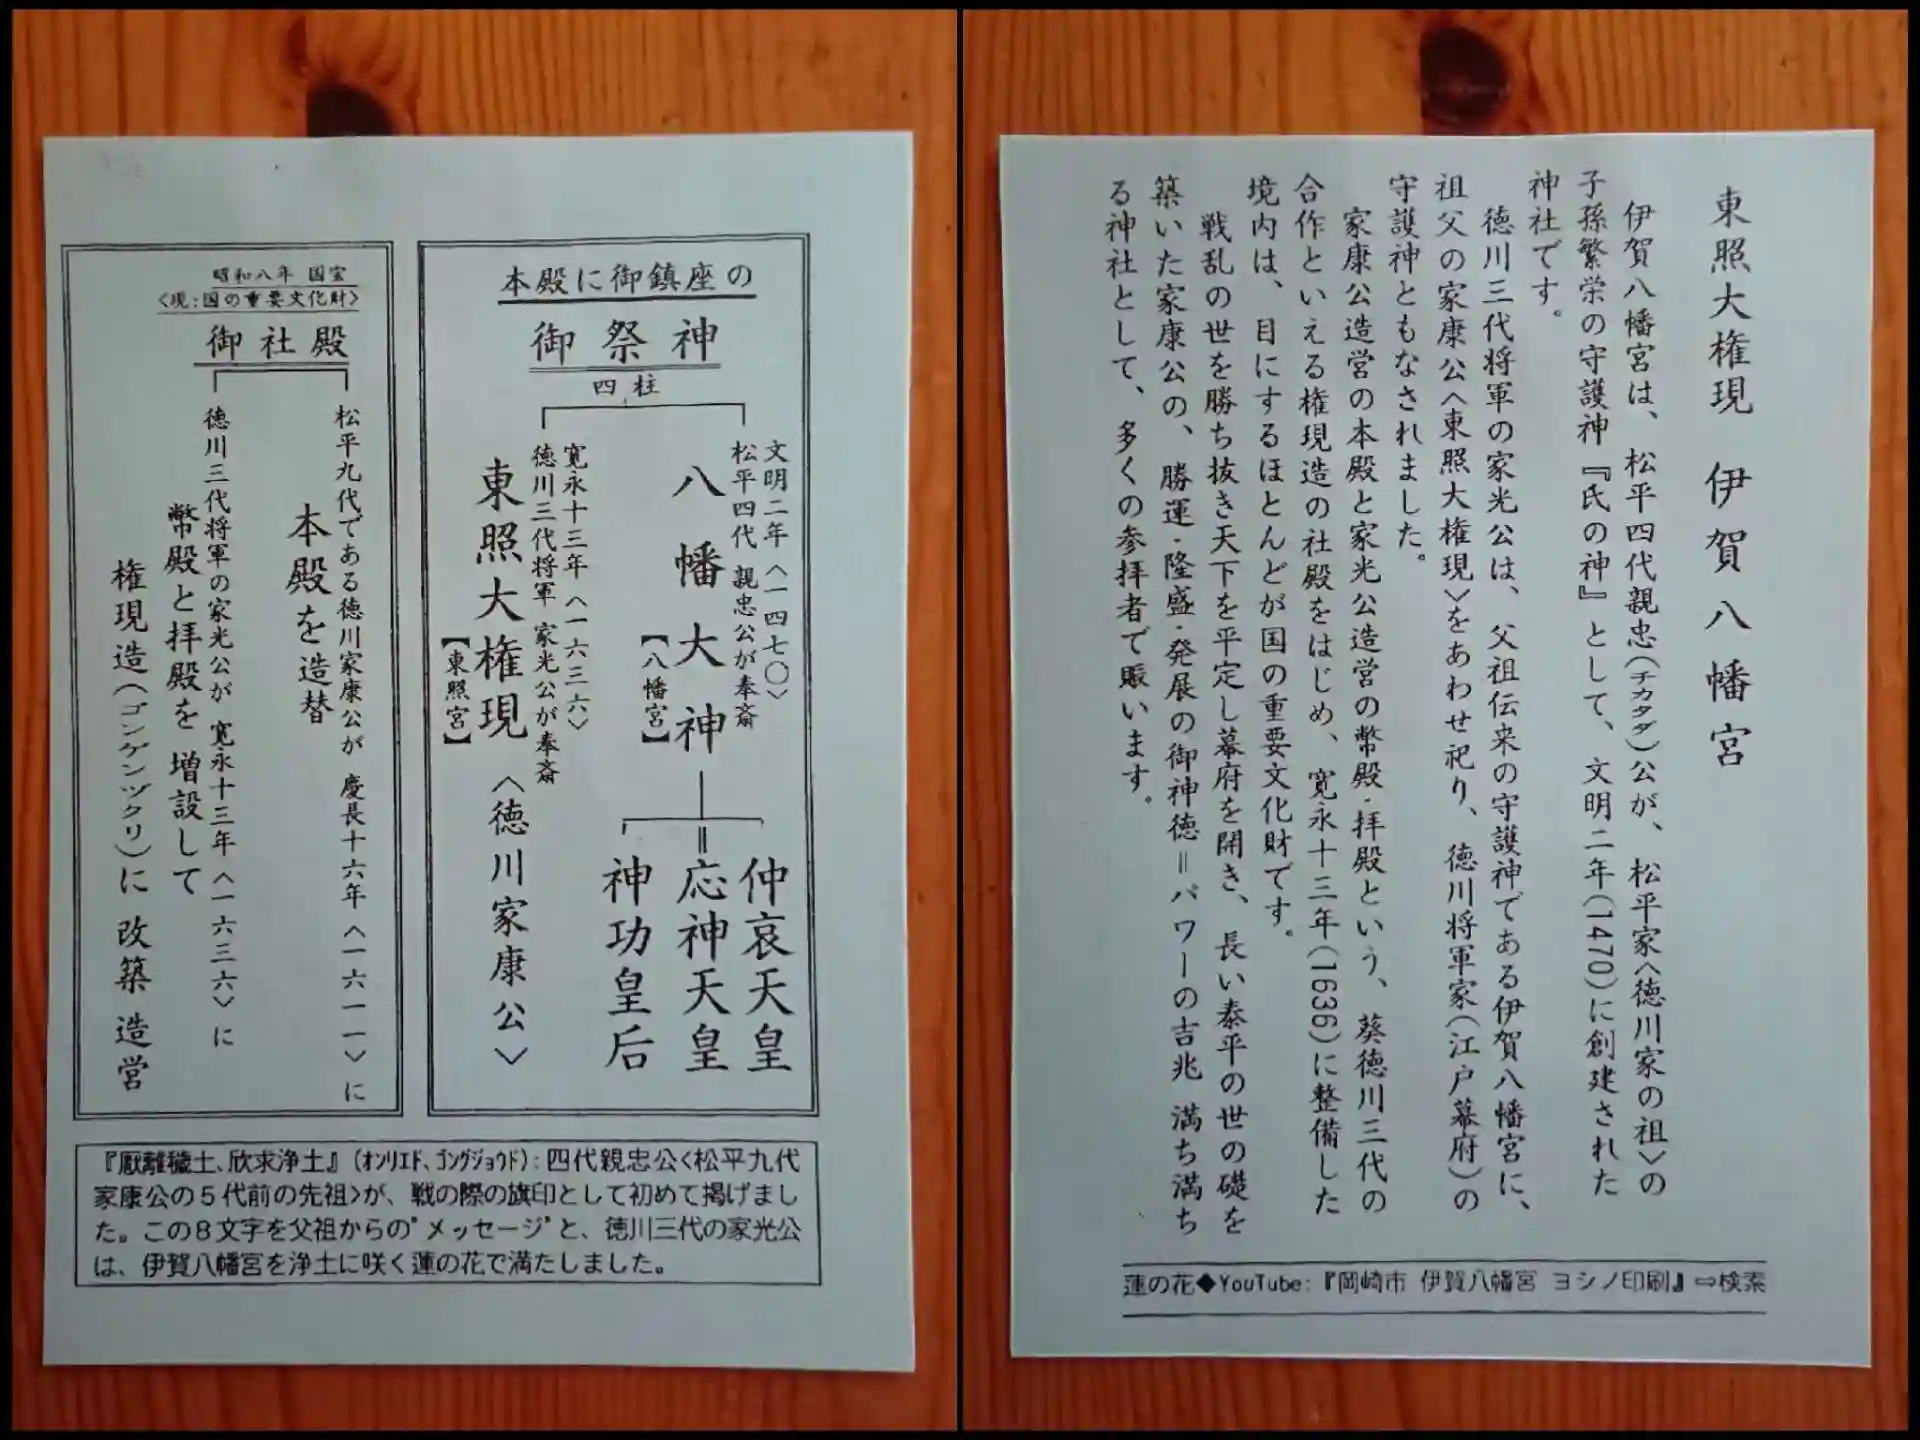 本殿に御鎮座の
御祭神
四柱
文明二年〈一四七〇〉
松平四代 親忠公が奉斎
八幡大神
【八幡宮】
仲哀天皇
応神天皇
神功皇后
寛永十三年〈一六三六〉
徳川三代将軍 家光公が奉斎
東照大権現〈徳川家康公〉
【東照宮】
昭和八年 国宝
〈現:国の重要文化財〉
御社殿
松平九代である徳川家康公が 慶長十六年〈一六一一〉に
本殿を造替
徳川三代将軍の家光公が 寛永十三年〈一六三六〉に
幣殿と拝殿を増設して
権現造(ゴンゲンヅクリ)に改築造営
『厭離穢土、欣求浄土』(オンリエド、ゴングジョウド):四代親忠公<松平九代
家康公の5代前の先祖>が、戦の際の旗印として初めて掲げまし
た。この8文字を父祖からの"メッセージ"と、徳川三代の家光公
は、伊賀八幡宮を浄土に咲く蓮の花で満たしました。
東照大権現 伊賀八幡宮
伊賀八幡宮は、松平四代親忠(チカタダ)公が、松平家〈徳川家の祖〉の
子孫繁栄の守護神『氏の神』として、文明二年(1470)に創建された
神社です。
徳川三代将軍の家光公は、父祖伝来の守護神である伊賀八幡宮に、
祖父の家康公〈東照大権現〉をあわせ祀り、徳川将軍家(江戸幕府)の
守護神ともなされました。
家康公造営の本殿と家光公造営の幣殿・拝殿という、葵徳川三代の
合作といえる権現造の社殿をはじめ、寛永十三年(1636)に整備した
境内は、目にするほとんどが国の重要文化財です。
戦乱の世を勝ち抜き天下を平定し幕府を開き、長い泰平の世の礎を
築いた家康公の、勝運・隆盛・発展の御神徳=パワーの吉兆 満ち満ち
る神社として、多くの参拝者で賑います。
蓮の花◆YouTube:『岡崎市 伊賀八幡宮 ヨシノ印刷』⇨検索